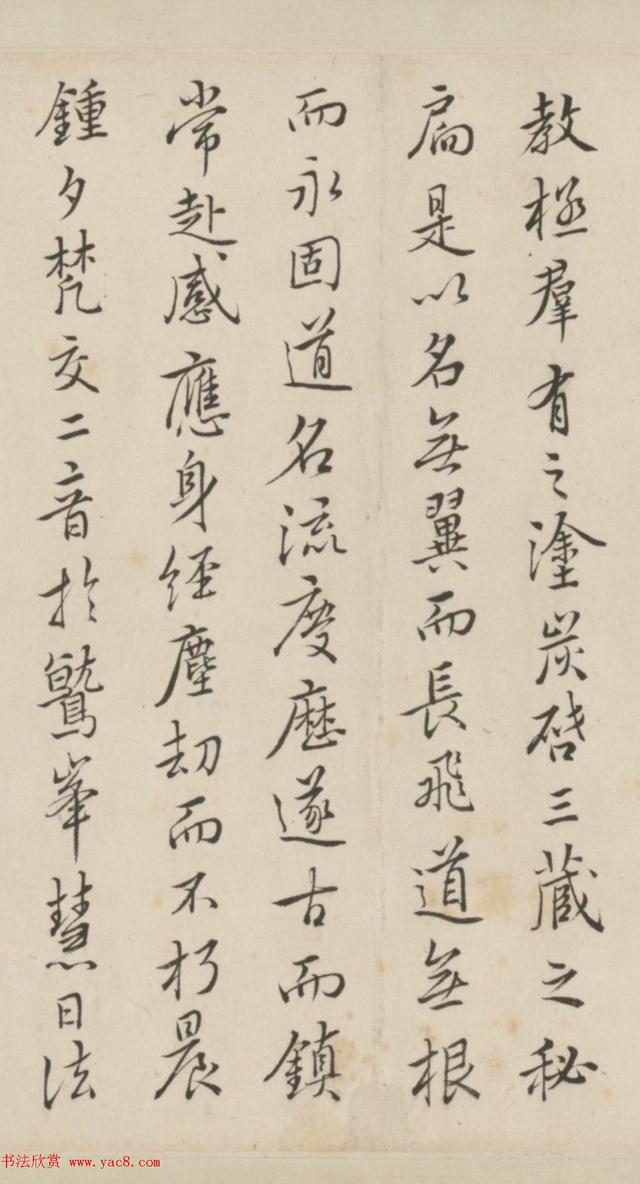 教極羣有之塗炭啓三蔵之秘
扃是以名無翼而長飛道無根
而永固道名流慶歴遂古而鎮
常赴感應身經塵劫而不朽晨
鍾夕梵交二音於鷲峯慧日法
书法欣赏 www.yac8.com